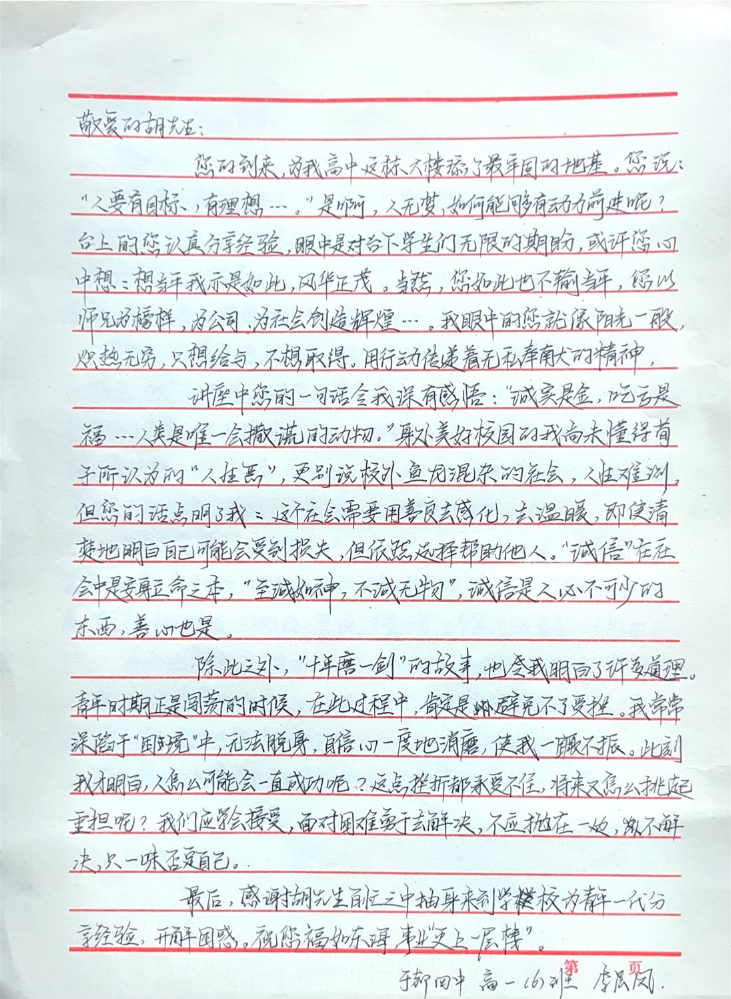 敬爱的胡先生：
您的到来，为我高中这栋大楼添了最牢固的地基。您说：
“人要有目标，有理想…。”是啊，人无梦，如何能够有动力前进呢？
台上的您认真分享经验，眼中是对台下学生们无限的期盼，或许您心
中想：想当年我亦是如此，风华正茂。当然，您如此也不输当年，您以
师兄为榜样，为公司、为社会创造辉煌…。我眼中的您就像阳光一般，
炽热无穷，只想给与，不想取得。用行动传递着无私奉献的精神。
讲座中您的一句话令我深有感悟：“诚实是金，吃亏是
福…人类是唯一会撒谎的动物。”身处美好校园的我尚未懂得荀
子所认为的“人性恶”，更别说校外鱼龙混杂的社会，人性难测。
但您的话点明了我：这个社会需要用善良去感化，去温暖，即使清
楚地明白自己可能会受到损失，但依然选择帮助他人。“诚信”在社
会中是安身立命之本，“至诚如神，不诚无物”，诚信是人必不可少的
东西，善心也是。
除此之外，“十年磨一剑”的故事，也令我明白了许多道理。
青年时期正是闯荡的时候，在此过程中，肯定是避免不了受挫。我常常
深陷于“困境”中，无法脱身，自信心一度地消磨，使我一蹶不振。此刻
我才明白，人怎么可能会一直成功呢？这点挫折都承受不住，将来又怎么挑起
重担呢？我们应学会接受，面对困难勇于去解决，不应抛在一边，不解
决，只一味否定自己。
最后，感谢胡先生百忙之中抽身来到学校为青年一代分
享经验，开解困惑。祝您福如东海，事业“更上一层楼”。
第 页
于都四中 高一（6）班 李